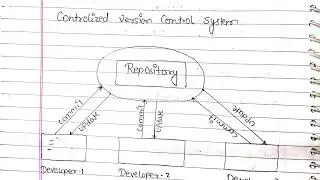 Centrolized version Control system
Repository
commit
update
commit
update
update
commit
Developer-1
Developer-2
Develope